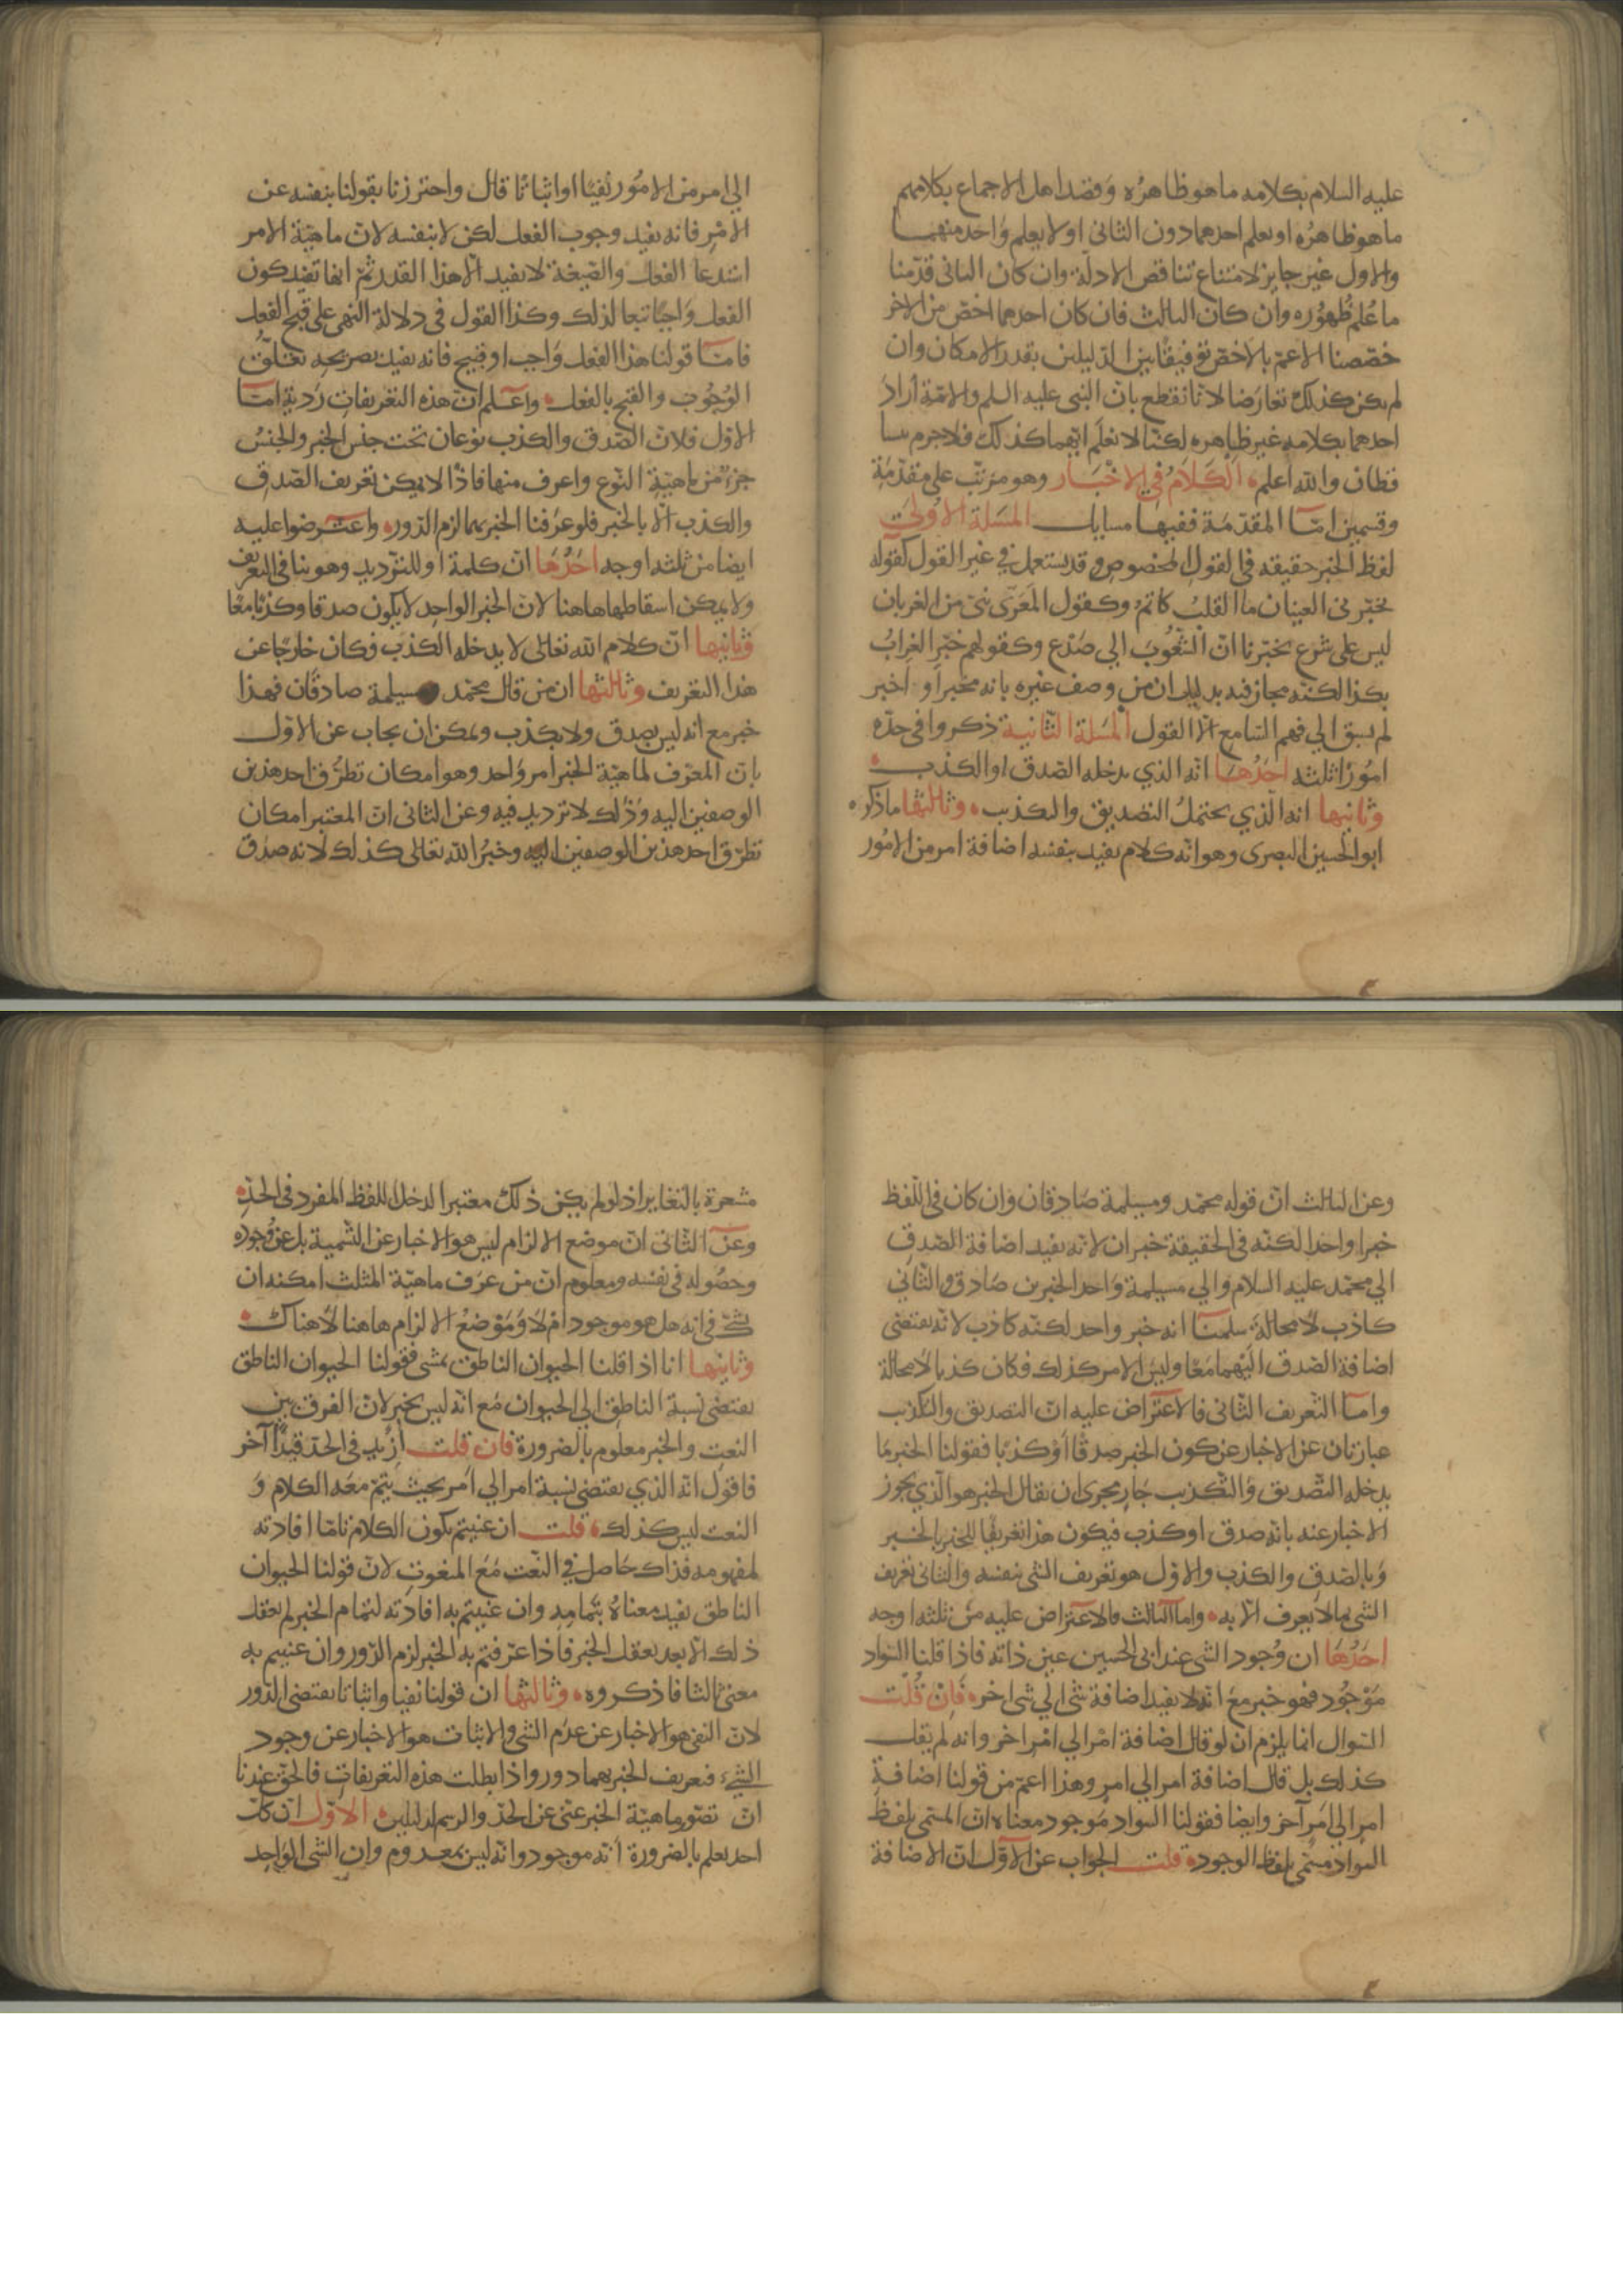 عليه السلام بكلامه ما هو ظاهره وقصد اهل الاجماع بكلامهم
ما هو ظاهره او يعلم احدهما دون الثاني او لا يعلم واحد منهما
والاول غير جايز لامتناع تناقض الادلة وان كان الثاني قدمنا
ما علم ظهوره وان كان الثالث فان كان احدهما اخص من الاخر
خصصنا الاعم بالاخص توفيقا بين الدليلين بقدر الامكان وان
لم يكن كذلك تعارضا لانا نقطع بان النبي عليه السلم والامة اراد
احدهما بكلامه غير ظاهره لكنا لا نعلم ايهما كذلك فلا جرم
والله اعلم الكلام في الاخبار وهو مرتب على مقدمة
وقسمين اما المقدمة ففيها مسايل المسلة الاولى
لفظ الخبر حقيقه في القول المخصوص وقد يستعمل في غير القول كقوله
تخبرني العينان ما القلب كاتم وكقول المعري نبي من الغربان
ليس على شرع يخبرنا ان الشعوب الي صدع وكقولهم خبر الغراب
بكذا لكنه مجاز فيه بدليل ان من وصف غيره بانه مخبر او اخبر
لم يسبق الي فهم السامع الا القول المسلة الثانية ذكروا في حده
امورا ثلثه احدها انه الذي يدخله الصدق او الكذب
وثانيها انه الذي يحتمل التصديق والتكذيب وثالثها ما ذكره
ابو الحسين البصري وهو انه كلام يفيد بنفسه اضافة امر من الامور
الي امر من الامور نفيا او اثباتا قال واحترزنا بقولنا بنفسه عن
الامر فانه يفيد وجوب الفعل لكن لا بنفسه لان ماهية الامر
استدعا الفعل والصيغة لا تفيد الا هذا القدر ثم انها تفيد كون
الفعل واجبا تبعا لذلك وكذا القول في دلالة النهي على قبح الفعل
فاما قولنا هذا الفعل واجب او قبيح فانه يفيد بصريحه تعلق
الوجوب والقبح بالفعل واعلم ان هذه التعريفات ردية اما
الاول فلان الصدق والكذب نوعان تحت جنس الخبر والجنس
جزء من ماهية النوع واعرف منها فاذا لا يمكن تعريف الصدق
والكذب الا بالخبر فلو عرفنا الخبر بهما لزم الدور واعترضوا عليه
ايضا من ثلثه اوجه احدها ان كلمة او للترديد وهو ينافي التعريف
ولا يمكن اسقاطها هاهنا لان الخبر الواحد لا يكون صدقا وكذبا معا
وثانيها ان كلام الله تعالى لا يدخله الكذب فكان خارجا عن
هذا التعريف وثالثها ان من قال محمد ومسيلمة صادقان فهذا
خبر مع انه ليس بصدق ولا بكذب ويمكن ان يجاب عن الاول
بان المعرف لماهية الخبر امر واحد وهو امكان تطرق احد هذين
الوصفين اليه وذلك لا ترديد فيه وعن الثاني ان المعتبر امكان
تطرق احد هذين الوصفين اليه وخبر الله تعالى كذلك لانه صدق
وعن الثالث ان قوله محمد ومسيلمة صادقان وان كان في اللفظ
خبرا واحدا لكنه في الحقيقة خبران لانه يفيد اضافة الصدق
الي محمد عليه السلام والي مسيلمة واحد الخبرين صادق والثاني
كاذب لا محالة سلمنا انه خبر واحد لكنه كاذب لانه يقتضي
اضافة الصدق اليهما معا وليس الامر كذلك فكان كذبا لا محالة
واما التعريف الثاني فالاعتراض عليه ان التصديق والتكذيب
عبارتان عن الاخبار عن كون الخبر صدقا او كذبا فقولنا الخبر ما
يدخله التصديق والتكذيب جار مجرى ان يقال الخبر هو الذي يجوز
الاخبار عنه بانه صدق او كذب فيكون هذا تعريفا للخبر بالخبر
وبالصدق والكذب والاول هو تعريف الشي بنفسه والثاني تعريف
الشي بما لا يعرف الا به واما الثالث فالاعتراض عليه من ثلثه اوجه
احدها ان وجود الشي عند ابي الحسين عين ذاته فاذا قلنا السواد
موجود فهو خبر مع انه لا يفيد اضافة شي الي شي اخر فان قلت
السوال انما يلزم ان لو قال اضافة امر الي امر اخر وانه لم يقل
كذلك بل قال اضافة امر الي امر وهذا اعم من قولنا اضافة
امر الي امر آخر وايضا فقولنا السواد موجود معناه ان المسمى بلفظ
السواد مسمى بلفظ الوجود قلت الجواب عن الاول ان الاضافة
مشعرة بالتغاير اذ لو لم يكن ذلك معتبرا لدخل اللفظ المفرد في الحد
وعن الثاني ان موضع الالزام ليس هو الاخبار عن التسمية بل عن وجوده
وحصوله في نفسه ومعلوم ان من عرف ماهية المثلث امكنه ان
يشك في انه هل هو موجود ام لا وموضع الالزام هاهنا لا هناك
وثانيها انا اذا قلنا الحيوان الناطق يمشي فقولنا الحيوان الناطق
يقتضي نسبة الناطق الي الحيوان مع انه ليس بخبر لان الفرق بين
النعت والخبر معلوم بالضرورة فان قلت ازيد في الحد قيدا آخر
فاقول انه الذي يقتضي نسبة امر الي امر بحيث يتم معه الكلام و
النعت ليس كذلك قلت ان عنيتم بكون الكلام تاما افادته
لمفهومه فذاك حاصل في النعت مع المنعوت لان قولنا الحيوان
الناطق يفيد معناه بتمامه وان عنيتم به افادته لتمام الخبر لم يعقل
ذلك الا بعد تعقل الخبر فاذا عرفتم به الخبر لزم الدور وان عنيتم به
معنى ثالثا فاذكروه وثالثها ان قولنا نفيا واثباتا يقتضي الدور
لان النفي هو الاخبار عن عدم الشي والاثبات هو الاخبار عن وجود
الشيء فتعريف الخبر بهما دور واذا بطلت هذه التعريفات فالحق عندنا
ان تصور ماهية الخبر غني عن الحد والرسم لدليلين الاول ان كل
احد يعلم بالضرورة انه موجود وانه ليس بمعدوم وان الشي الواحد